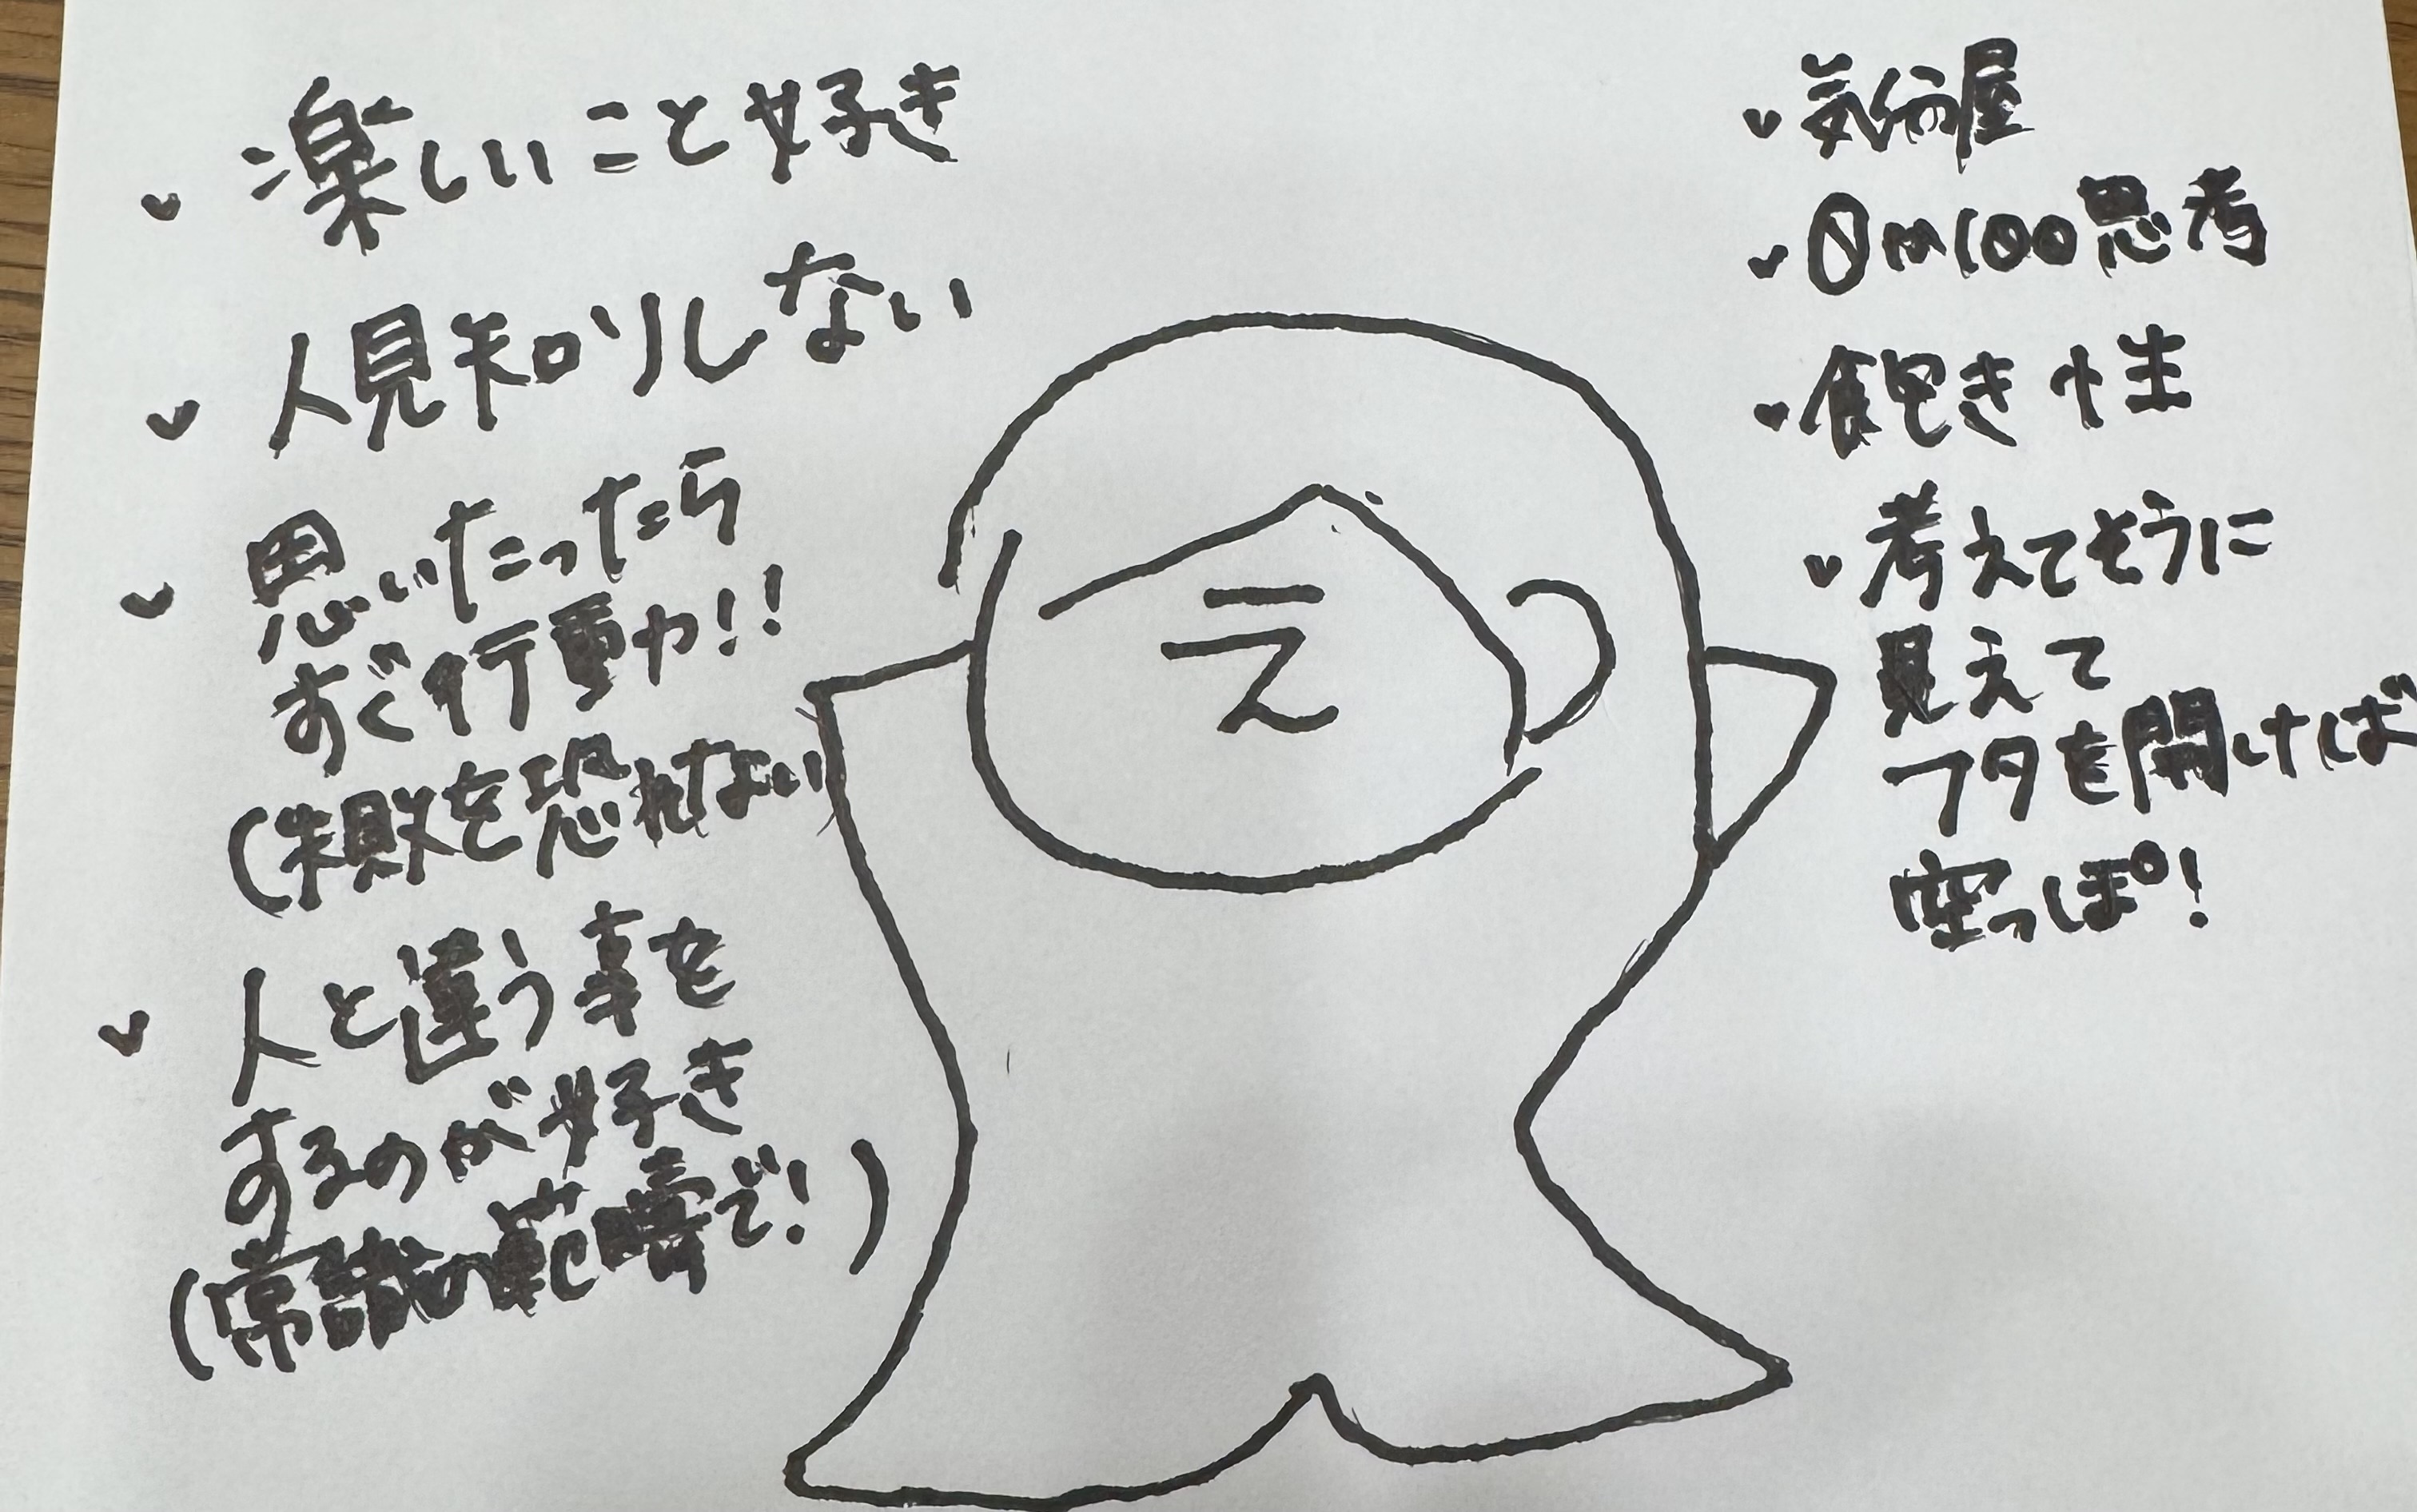 楽しいこと好き
人見知りしない
思いたったら
すぐ行動!!
(失敗を恐れない
人と違う事を
するのが好き
(常識の範疇で!)
え
気分屋
0か100思考
飽き性
考えてそうに
見えて
フタを開けば
空っぽ!